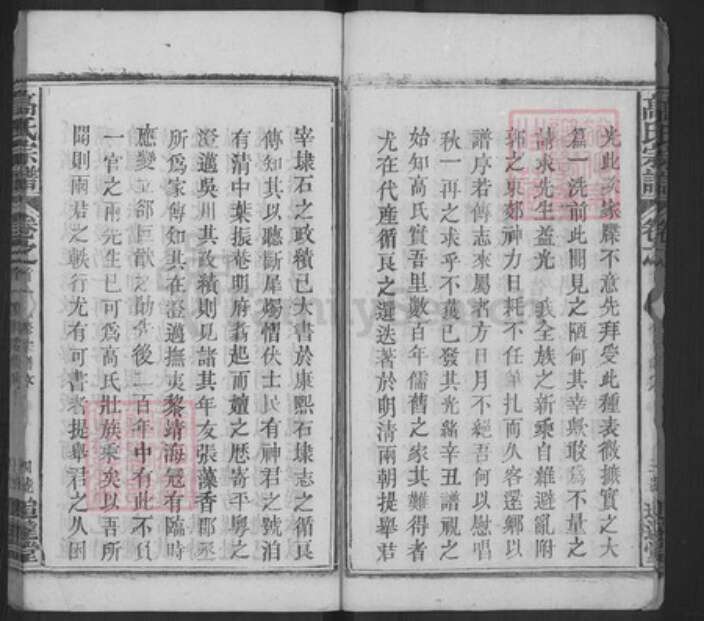 光此亥家牒不意先拜受此種表微摭實之大
篇一洗前此聞見之陋何其幸歟敢為不量之
請求先生益光我全族之新乘自難避亂附
郭之東郊神力日耗不任筆扎而久客還鄉以
譜序若傳志來屬者方日月不絕吾何以慰唱
秋一再之求乎不獲已發其光緒辛丑譜視之
始知高氏實吾里數百年儒舊之家其難得者
尤在代產循良之選迭著於明清兩朝提舉君
宰埭石之政績已大書於康熙石埭志之循良
傳知其以聽斷犀燭愶伏士民有神君之號泊
有清中葉振菴明府翥起而嬗之歷寄平粵之
澄邁吳川其政績則見諸其年友張藻香郡丞
所為家傳知其在澄邁撫夷黎靖海冦有臨時
應變立郤巨猷之勳前後二百年中有此不負
一官之兩先生已可為高氏壯族乘矣以吾所
聞則兩君之軼行尤有可書者提舉君之以因
高氏宗譜
卷之首
高氏宗譜
追遠堂
FamilySearch